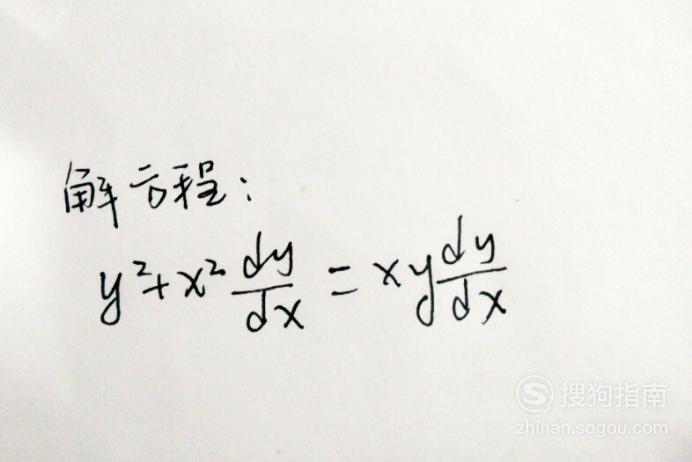 解方程：
y²+x² dy/dx = xy dy/dx
S 搜狗指南
zhinan.sogou.com